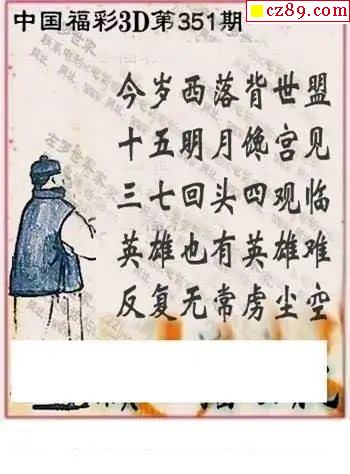 cz89.com
中国福彩3D第351期
今岁西落背世盟
十五明月馋宫见
三七回头四观临
英雄也有英雄难
反复无常虏尘空